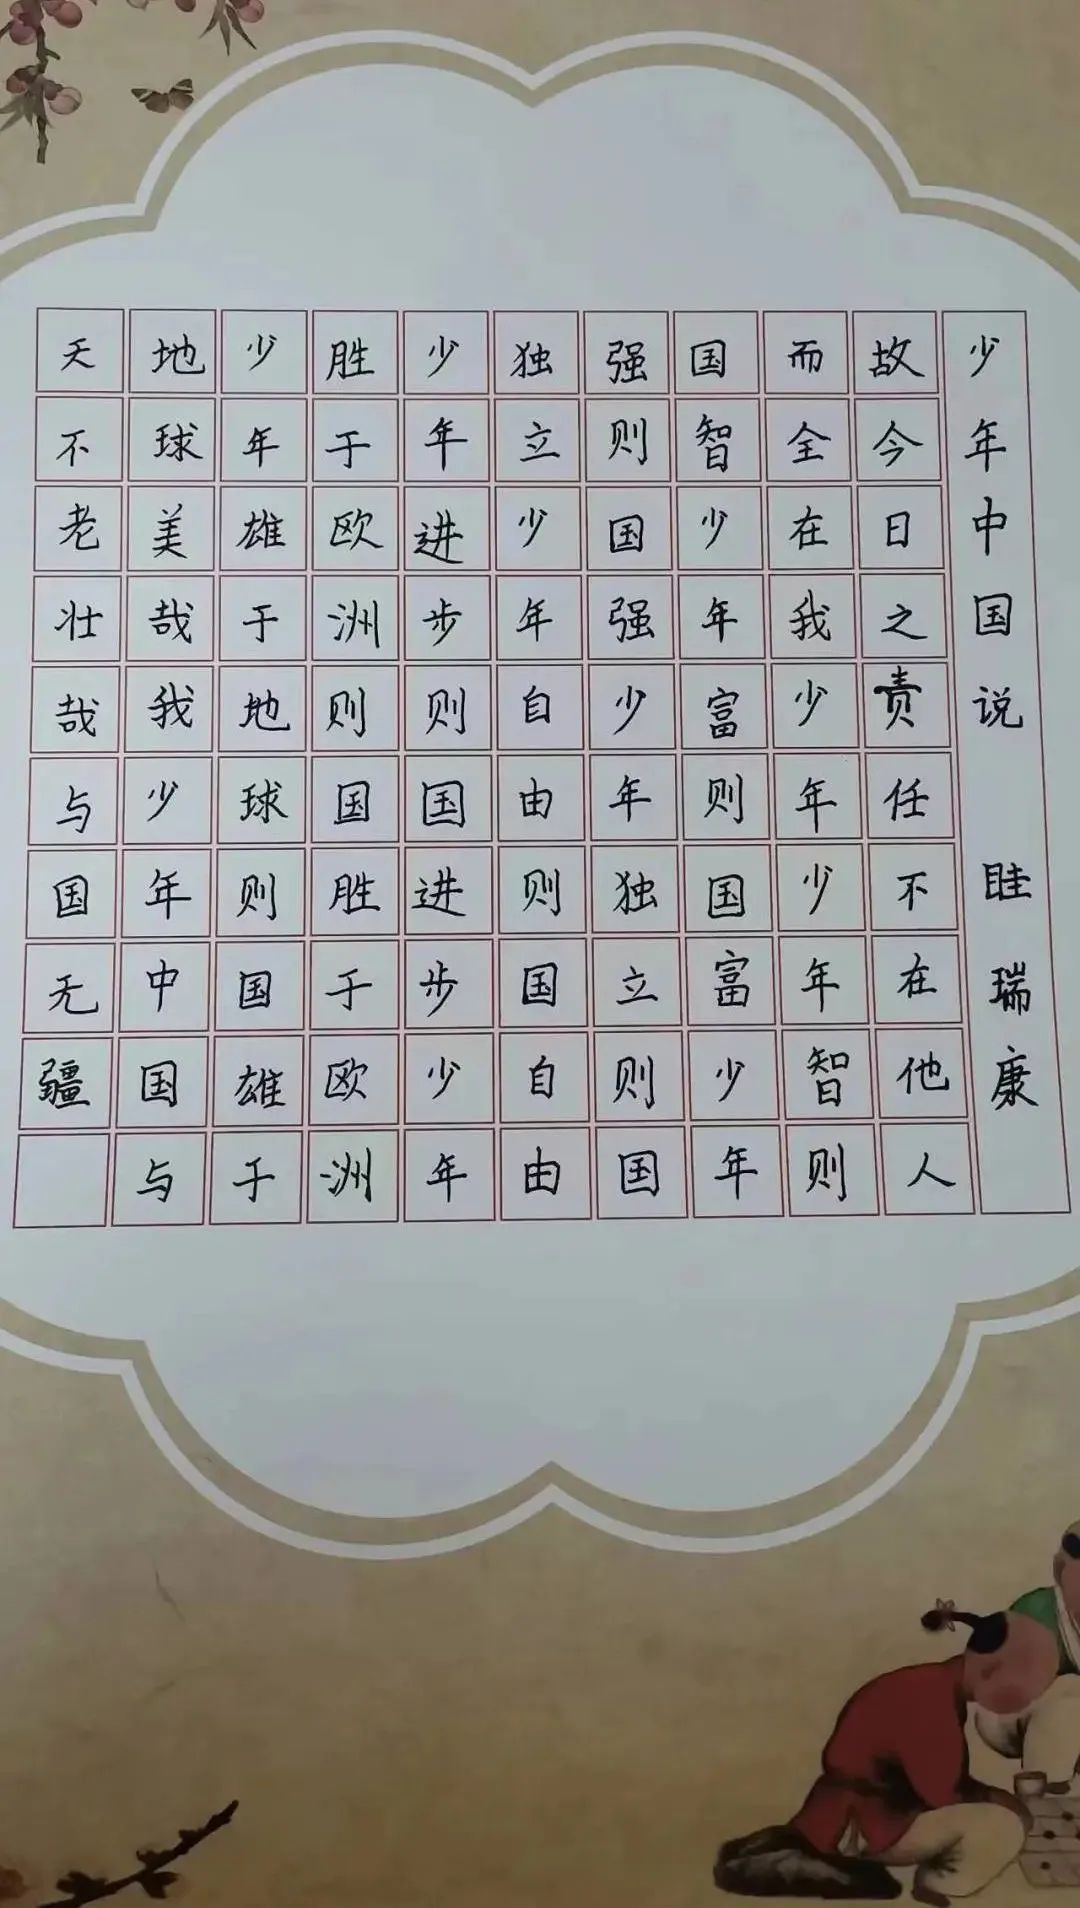 少年中国说 眭瑞康
故今日之责任不在他人
而全在我少年少年智则
国智少年富则国富少年
强则国强少年独立则国
独立少年自由则国自由
少年进步则国进步少年
胜于欧洲则国胜于欧洲
少年雄于地球则国雄于
地球美哉我少年中国与
天不老壮哉与国无疆